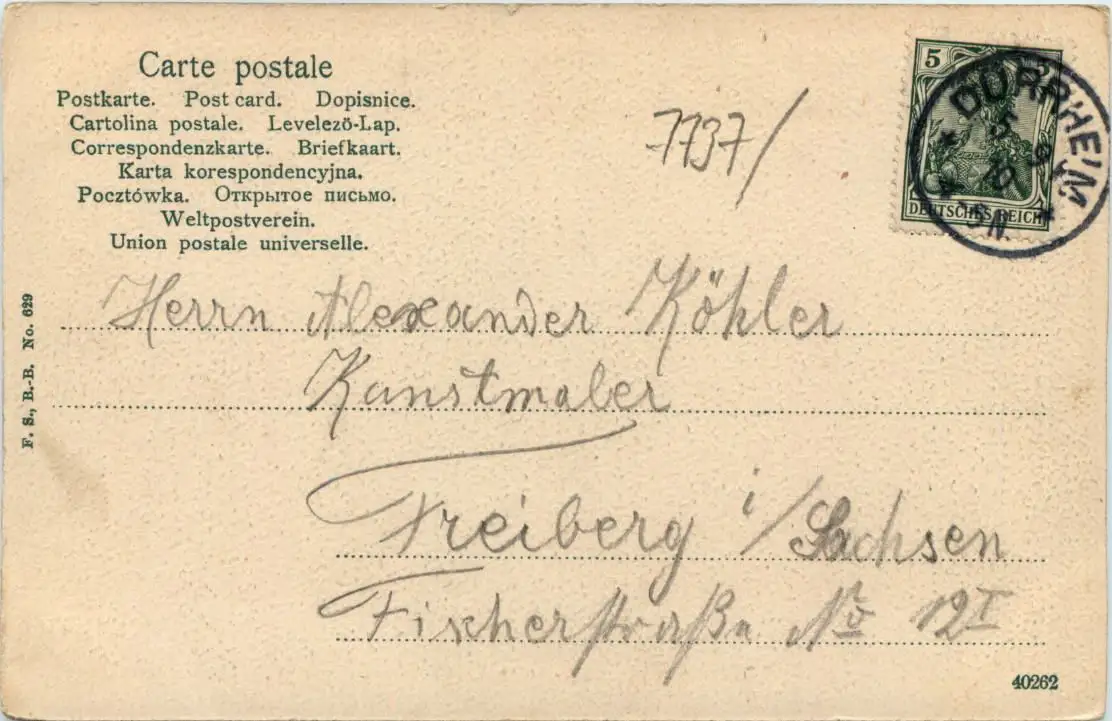 Carte postale
Postkarte. Post card. Dopisnice.
Cartolina postale. Levelezö-Lap.
Correspondenzkarte. Briefkaart.
Karta korespondencyjna.
Pocztówka. Открытое письмо.
Weltpostverein.
Union postale universelle.
7737/
5
DEUTSCHES REICH
* DÜRRHEIM *
5 9
10
4-5N.
Herrn Alexander Köhler
Kunstmaler
Freiberg i/Sachsen
Fischerstraße No 12 I
F. S., B.-B. No. 629
40262